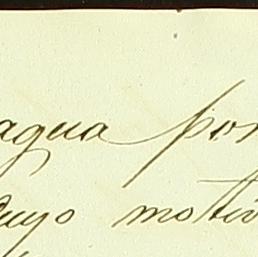 agua por
cuyo motiv